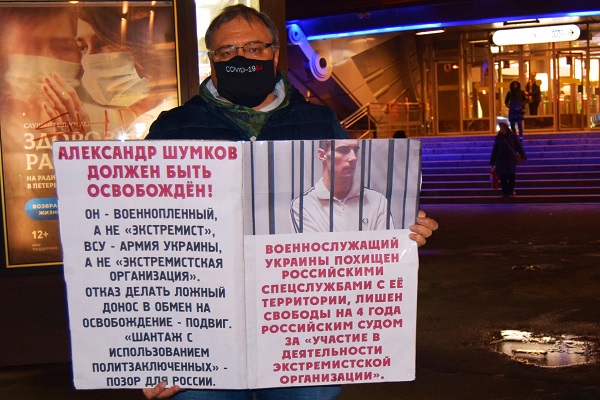 COVID-1984
СЛУШАЙТЕ
ЗДОРОВОЕ
РАДИО
НА РАДИО
В ПЕТЕРБ
ВОЗВРА
ЖИЗНИ
12+
АЛЕКСАНДР ШУМКОВ
ДОЛЖЕН БЫТЬ
ОСВОБОЖДЁН!
ОН - ВОЕННОПЛЕННЫЙ,
А НЕ «ЭКСТРЕМИСТ»,
ВСУ - АРМИЯ УКРАИНЫ,
А НЕ «ЭКСТРЕМИСТСКАЯ
ОРГАНИЗАЦИЯ».
ОТКАЗ ДЕЛАТЬ ЛОЖНЫЙ
ДОНОС В ОБМЕН НА
ОСВОБОЖДЕНИЕ - ПОДВИГ.
«ШАНТАЖ С
ИСПОЛЬЗОВАНИЕМ
ПОЛИТЗАКЛЮЧЕННЫХ» -
ПОЗОР ДЛЯ РОССИИ.
ВОЕННОСЛУЖАЩИЙ
УКРАИНЫ ПОХИЩЕН
РОССИЙСКИМИ
СПЕЦСЛУЖБАМИ С ЕЁ
ТЕРРИТОРИИ, ЛИШЕН
СВОБОДЫ НА 4 ГОДА
РОССИЙСКИМ СУДОМ
ЗА «УЧАСТИЕ В
ДЕЯТЕЛЬНОСТИ
ЭКСТРЕМИСТСКОЙ
ОРГАНИЗАЦИИ».